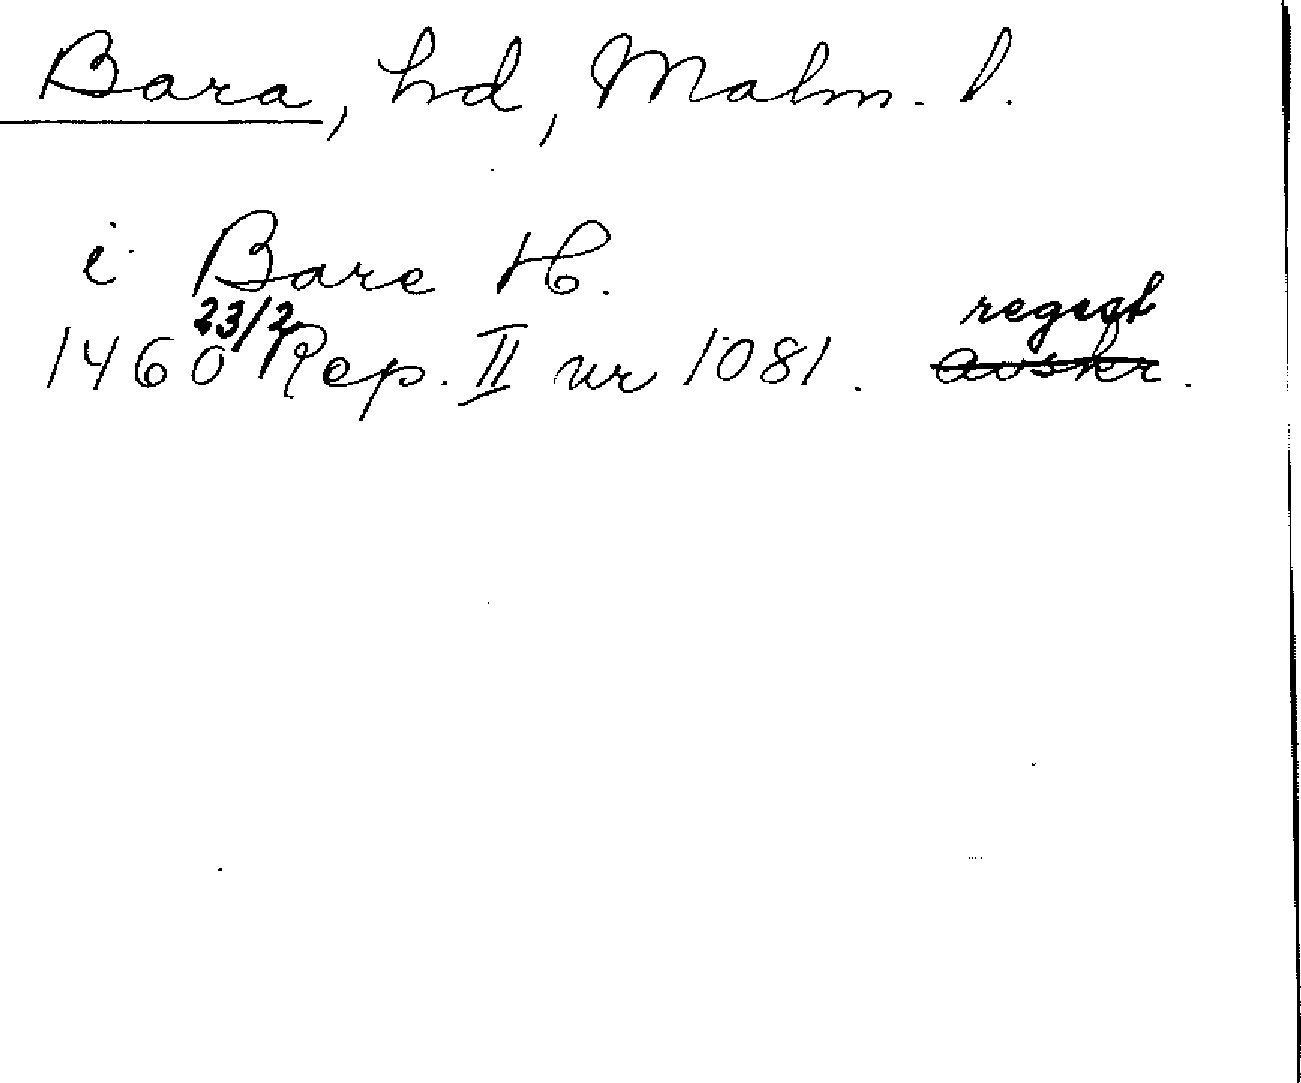 Bara, hd, Malm. l.
i Bare H.
1460 23/2 Rep. II nr 1081. regest avskr.